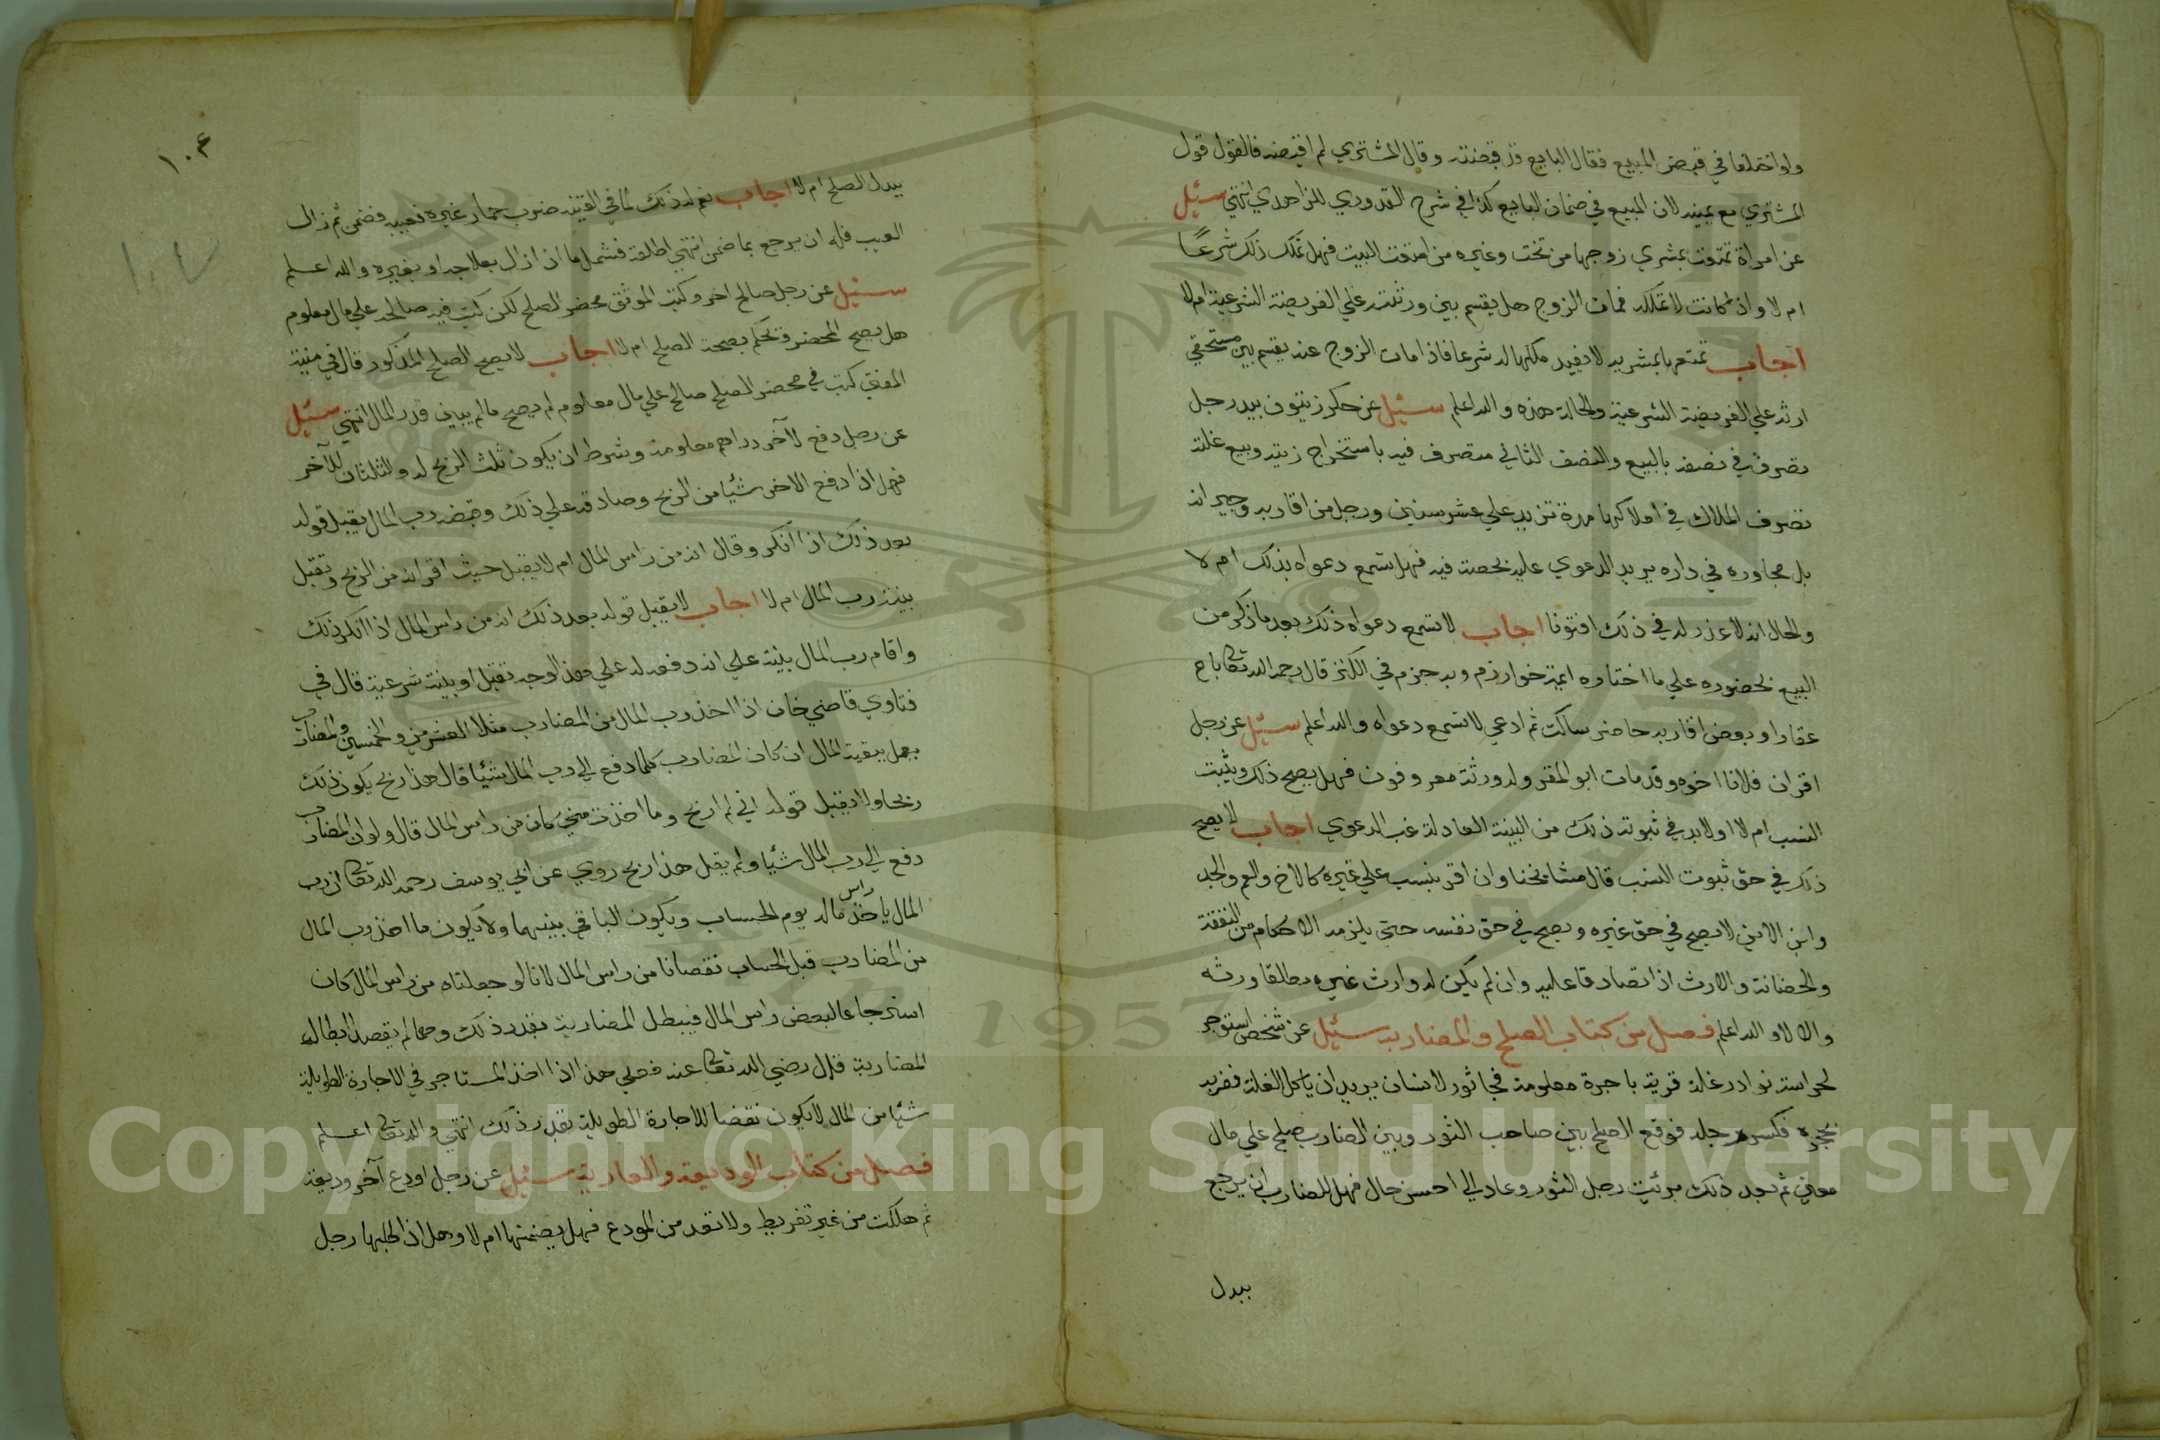 ولو اختلفا في قبض المبيع فقال البايع قد قبضته وقال المشتري لم اقبضه فالقول قول
المشتري مع يمينه لان المبيع في ضمان البايع كذا في شرح القدوري للزاهدي انتهى سئل
عن امراة تمتعت بمشري زوجها من تخت وغيره من امتعت البيت فهل تملك ذلك شرعا
ام لا واذا كانت لا تملكه فمات الزوج هل يقسم بين ورثته علي الفريضة الشرعية ام لا
اجاب تمتعها بمشريه لا يفيد ملكها له شرعا فاذا مات الزوج عنه يقسم بين مستحقي
ارثه علي الفريضة الشرعية والحالة هذه والله اعلم سئل عن حكر زيتون بيد رجل
تصرف في نصفه بالبيع والنصف الثاني متصرف فيه باستخراج زيته وبيع غلته
تصرف الملاك في املاكها مدة تزيد علي عشر سنين ورجل من اقاربه وجيرانه
بل مجاوره في داره يريد الدعوي عليه بحصة فيه فهل تسمع دعواه بذلك ام لا
والحال انه لا عذر له في ذلك افتونا اجاب لا تسمع دعواه ذلك بعد ما ذكر من
البيع بحضوره علي ما اختاره ايمة خوارزم وبه جزم في الكنز قال رحمه الله تعالى باع
عقارا وبعض اقاربه حاضر ساكت ثم ادعي لا تسمع دعواه والله اعلم سئل عن رجل
اقر ان فلانا اخوه وقد مات ابو المقر وله ورثة معروفون فهل يصح ذلك ويثبت
النسب ام لا اولا بد في ثبوته ذلك من البينة العادلة غب الدعوي اجاب لا يصح
ذلك في حق ثبوت النسب قال مشايخنا وان اقر بنسب علي غيره كالاخ والعم والجد
وابن الابن لا يصح في حق غيره ويصح في حق نفسه حتى يلزمه الاحكام من النفقة
والحضانة والارث اذا تصادقا عليه وان لم يكن له وارث غيره مطلقا ورثه
والا لا والله اعلم فصل من كتاب الصلح والمضاربة سئل عن شخص استوجر
لحراسة نوادر غلة قرية باجرة معلومة فجا ثور لانسان يريد ان ياكل الغلة فضربه
بحجره فكسره رجله فوقع الصلح بين صاحب الثور وبين الضارب صلح علي مال
معين ثم بعد ذلك برئت رجل الثور وعاد الي احسن حال فهل للضارب ان يرجع
ببدل
١٠٤
١٠٧
ببدل الصلح ام لا اجاب نعم له ذلك لما في القنية ضرب حمار غيره فعيبه فضمن ثم زال
العيب فله ان يرجع بما ضمن انتهي اطلقه فشمل ما اذا زال بعلاجه او بغيره والله اعلم
سئيل عن رجل صالح اخر وكتب الموثق محضر الصلح لكن كتب فيه صالحه علي مال معلوم
هل يصح المحضر وتحكم بصحة الصلح ام لا اجاب لا يصح الصلح المذكور قال في منية
المفتي كتب في محضر الصلح صالح علي مال معلوم لم يصح ما لم يبين قدر المال انتهي سئيل
عن رجل دفع لآخر دراهم معلومة وشرط ان يكون ثلث الربح له والثلثان للآخر
فهل اذا دفع الاخر شيئا من الربح وصادقه علي ذلك وقبضه رب المال يقبل قوله
بعد ذلك اذا انكر وقال انه من راس المال ام لا يقبل حيث اقر انه من الربح وتقبل
بينة رب المال ام لا اجاب لا يقبل قوله بعد ذلك انه من راس المال اذا انكر ذلك
واقام رب المال بينة علي انه دفعه له علي هذا الوجه تقبل او بينة شرعية قال في
فتاوي قاضي خان اذا اخذ رب المال من المضارب مثلا العشرين والخمسين والمضارب
يعمل ببقية المال ان كان المضارب كلما دفع الي رب المال شيئا قال هذا ربح يكون ذلك
ربحا ولا يقبل قوله اني لم اربح وما اخذت مني كان من راس المال قال ولو ان المضارب
دفع الي رب المال شيئا ولم يقل هذا ربح روي عن ابي يوسف رحمه الله تعالى ان رب
المال ياخذ راس ماله يوم الحساب ويكون الباقي بينهما ولا يكون ما اخذ رب المال
من المضارب قبل الحساب نقصانا من راس المال لانا لو جعلناه من راس المال كان
استرجاعا لبعض راس المال فيبطل المضاربة بقدر ذلك وهما لم يقصدا ابطال
المضاربة قال رضي الله تعالى عنه فعلي هذا اذا اخذ المستاجر في الاجارة الطويلة
شيئا من المال لا يكون نقضا للاجارة الطويلة بقدر ذلك انتهي والله تعالى اعلم
فصل من كتاب الوديعة والعارية سئيل عن رجل اودع آخر وديعة
ثم هلكت من غير تفريط ولا تعد من المودع فهل يضمنها ام لا وهل اذا طلبها رجل
Copyright © King Saud University
1957